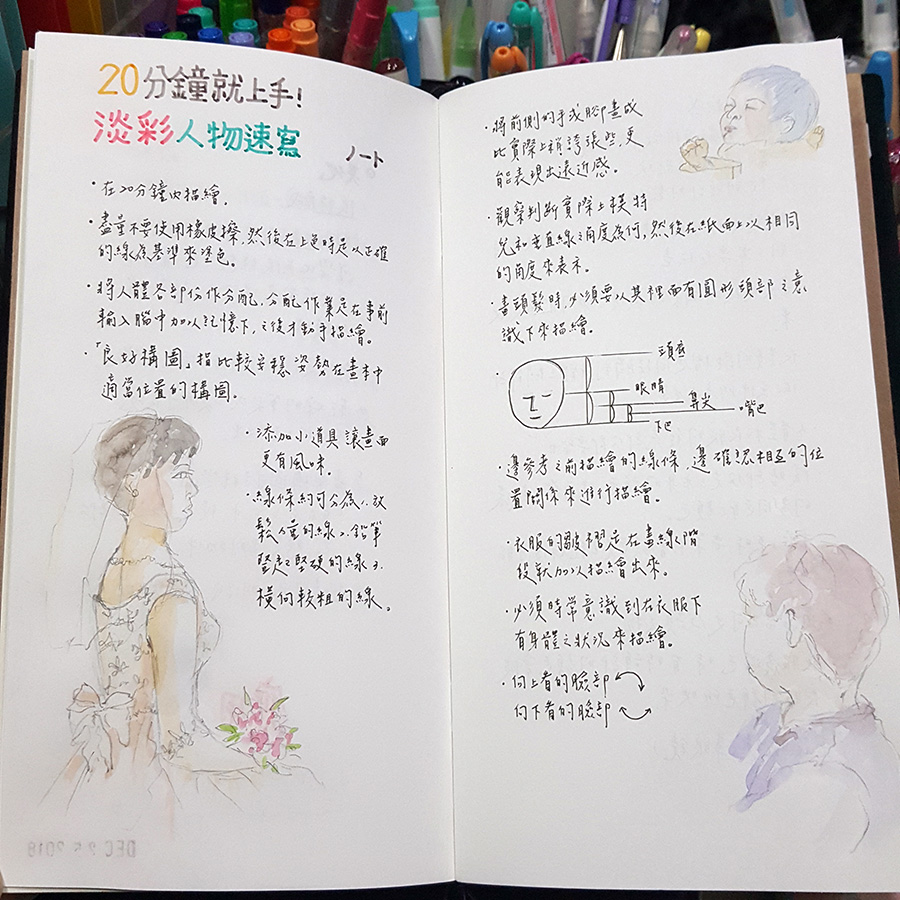 20分鐘就上手!
淡彩人物速寫
ノート
・在20分鐘內描繪。
・盡量不要使用橡皮擦,然後在上色時是以正確
的線為基準來塗色。
・將人體各部份作分配,分配作業是在事前
輸入腦中加以記憶下,之後才動手描繪。
・「良好構圖」指比較安穩姿勢在畫本中
適當位置的構圖。
・添加小道具讓畫面
更有風味。
・線條約可分為1.放
鬆力量的線2.鉛筆
豎起堅硬的線3.
橫向較粗的線。
・將前側的手或腳畫成
比實際上稍誇張些,更
能表現出遠近感。
・觀察判斷實際上模特
兒和垂直線之角度為何,然後在紙面上以相同
的角度來表示。
・畫頭髮時,必須要以其裡面有圓形頭部之意
識下來描繪。
頭底
眼睛
鼻尖
嘴巴
下巴
・邊參考之前描繪的線條,邊確認相互的位
置關係來進行描繪。
・衣服的皺褶是在畫線階
段就加以描繪出來。
・必須時常意識到在衣服下
有身體之狀況來描繪。
・向上看的臉部
向下看的臉部
DEC 25 2018